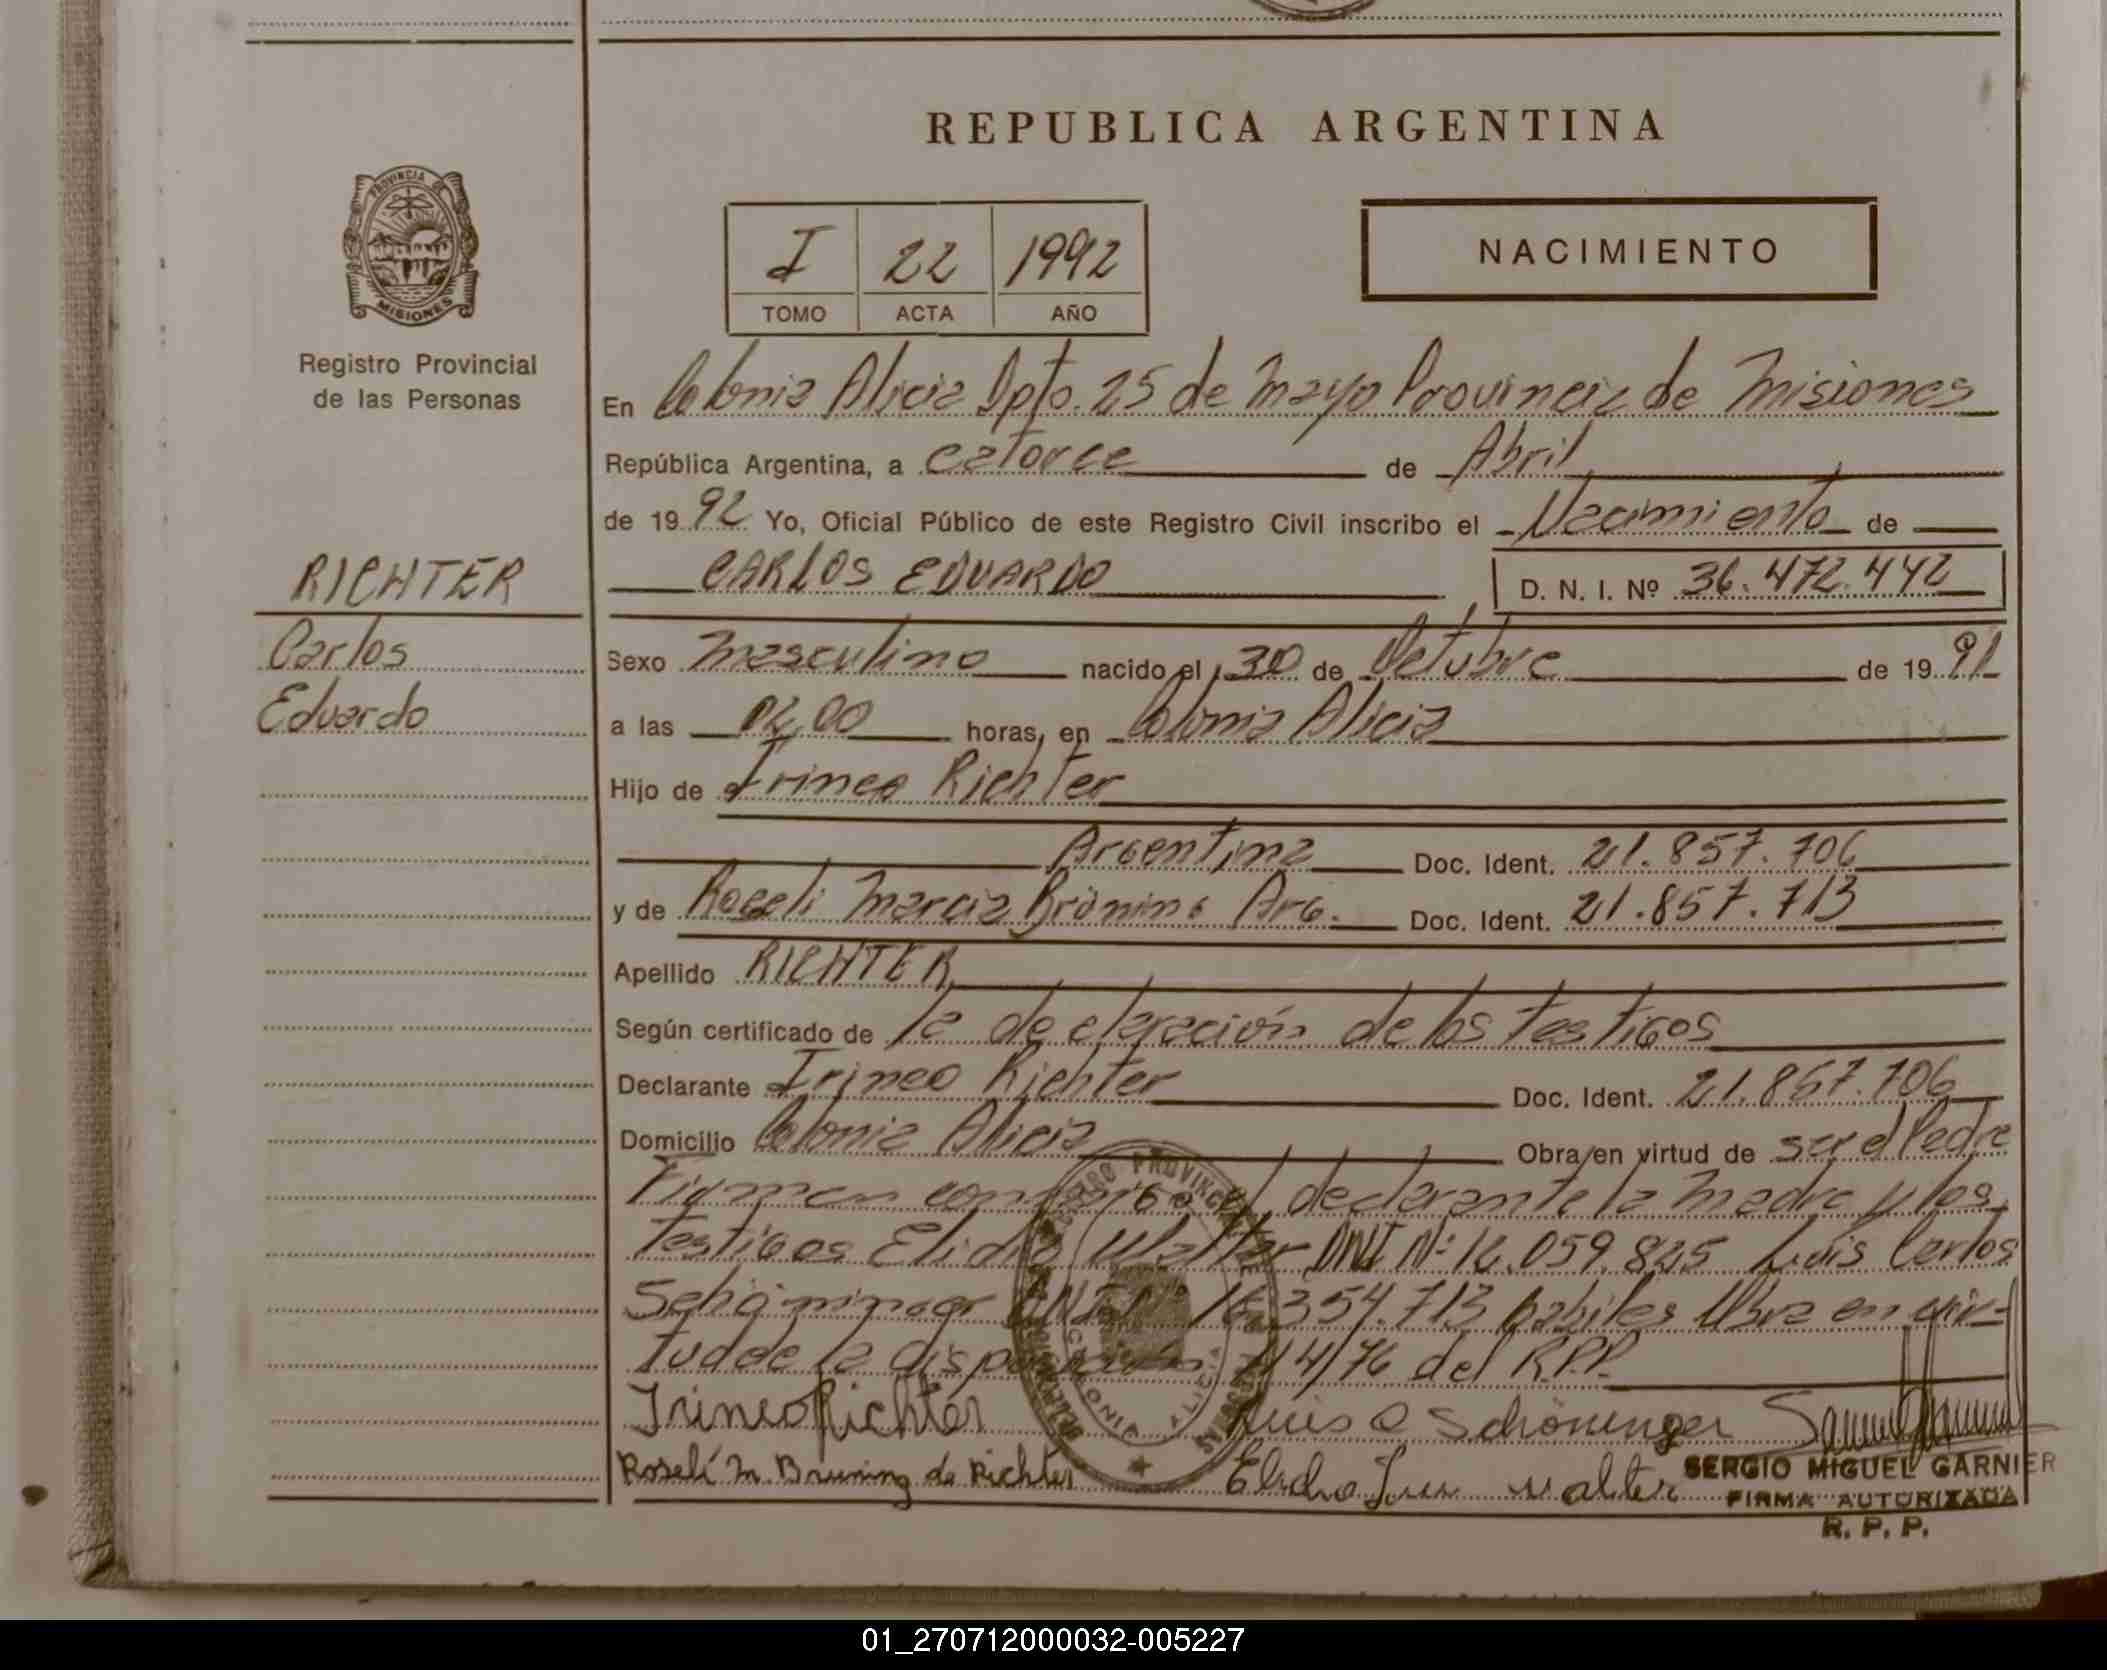 REPUBLICA ARGENTINA
PROVINCIA DE
MISIONES
Registro Provincial
de las Personas
I 22 1992
TOMO ACTA AÑO
NACIMIENTO
En Colonia Alicia Dpto. 25 de Mayo Provincia de Misiones
República Argentina, a catorce de Abril
de 1992 Yo, Oficial Público de este Registro Civil inscribo el Nacimiento de
CARLOS EDUARDO D. N. I. Nº 36.472.442
RICHTER
Carlos
Eduardo
Sexo Masculino nacido el 30 de Octubre de 1991
a las 02,00 horas, en Colonia Alicia
Hijo de Irineo Richter
Argentina Doc. Ident. 21.857.706
y de Roseli Marcia Brüning Arg. Doc. Ident. 21.857.713
Apellido RICHTER
Según certificado de la declaración de los testigos
Declarante Irineo Richter Doc. Ident. 21.857.706
Domicilio Colonia Alicia Obra en virtud de ser el Padre
Firman conmigo el declarante la madre y los
testigos Elidio Walter DNI Nº 16.059.825 Luis Carlos
Schöninger DNI Nº 16.354.713 habiles Obra en vir-
tud de la disposición 14/76 del R.P.P.
Irineo Richter Luis C Schöninger
Roseli M. Bruning de Richter Elidio Walter
SERGIO MIGUEL GARNIER
FIRMA AUTORIZADA
R. P. P.
01_270712000032-005227